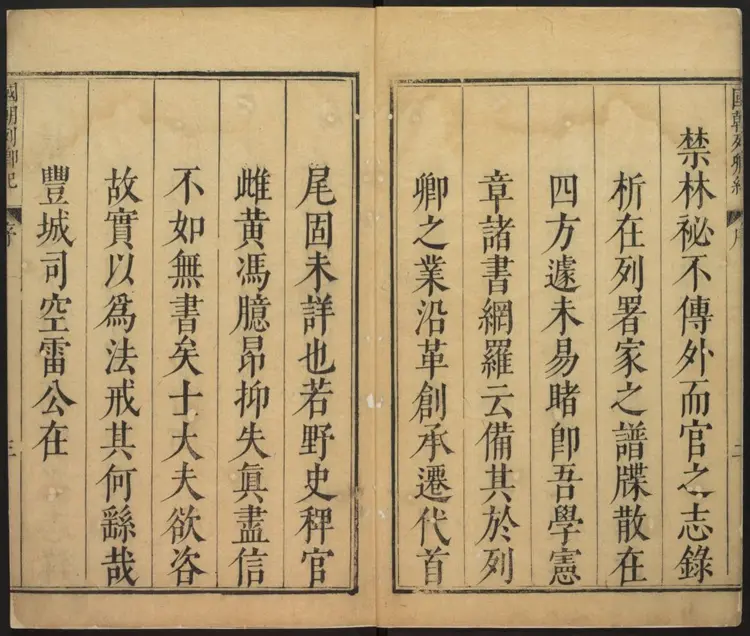 國朝列卿紀
序
二
禁林祕不傳外而官之志錄
析在列署家之譜牒散在
四方遽未易睹卽吾學憲
章諸書網羅云備其於列
卿之業沿革創承遷代首
尾固未詳也若野史稗官
雌黃馮臆昂抑失眞盡信
不如無書矣士大夫欲咨
故實以爲法戒其何繇哉
豐城司空雷公在
國朝列卿紀
序
三